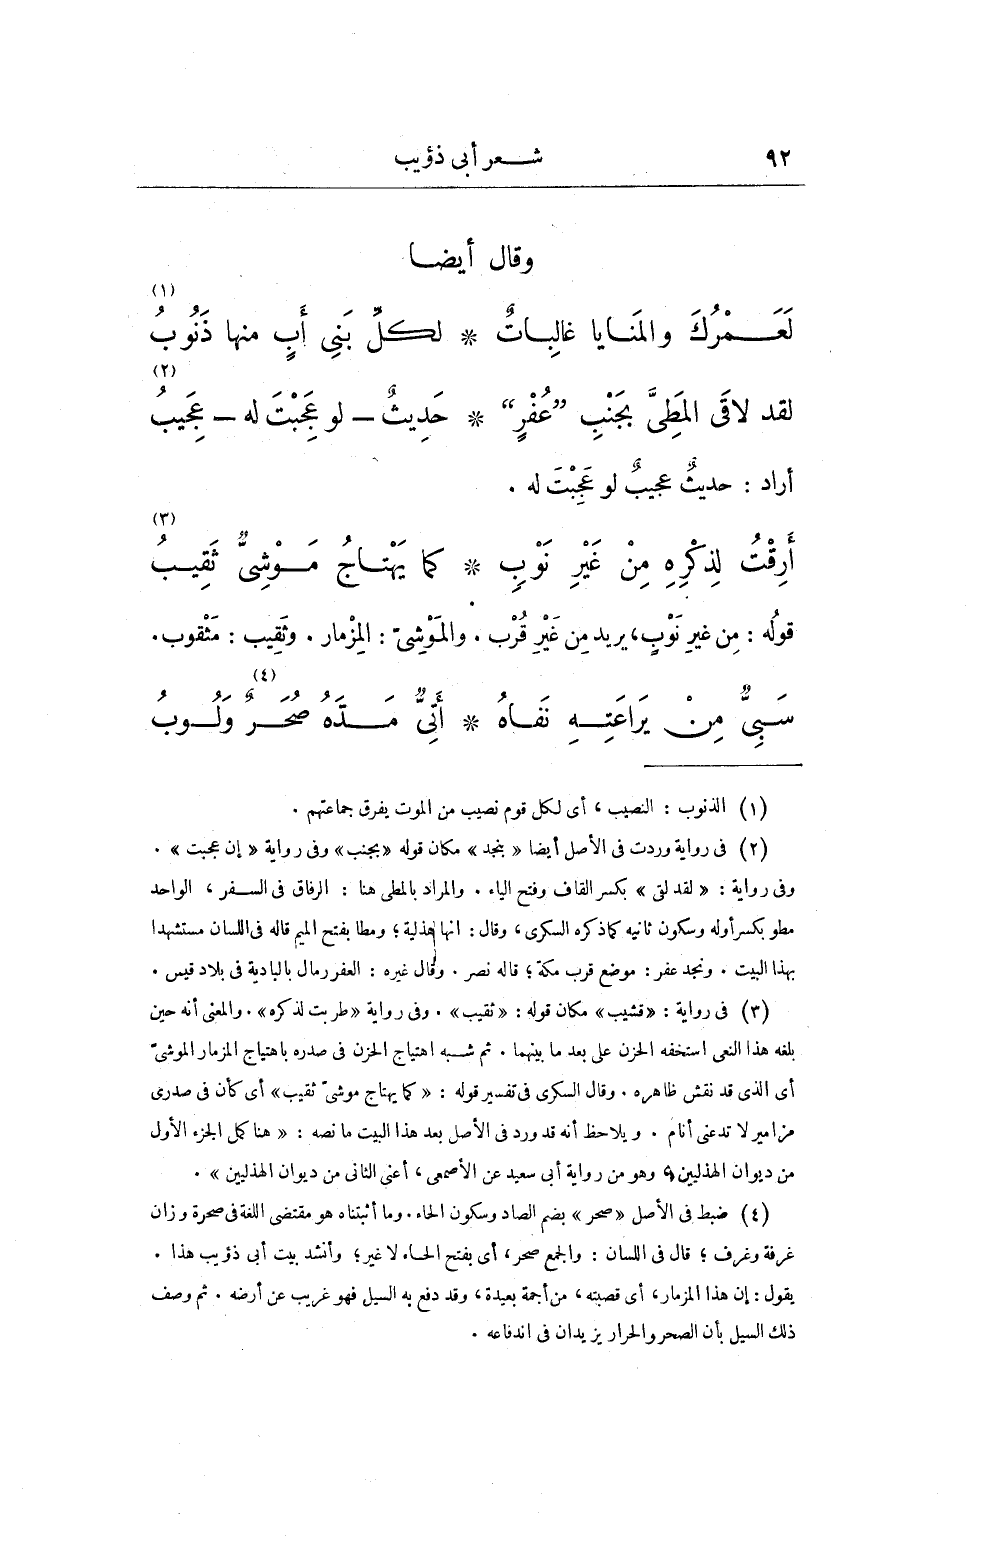 ٩٢ شعر أبى ذؤيب
وقال أيضا
لَعَمْرُكَ والمَنايا غالِباتٌ * لكلِّ بَنِى أَبٍ منها ذَنُوبُ (١)
لقد لاقَى المَطِىَّ بجَنْبِ ”عُفْرٍ“ * حَدِيثٌ – لو عَجِبْتَ له – عَجِيبُ (٢)
أراد : حديثٌ عجيبٌ لو عَجِبْتَ له .
أَرِقْتُ لِذِكْرِهِ مِنْ غَيْرِ نَوْبٍ * كما يَهْتاجُ مَوْشِىٌّ ثَقِيبُ (٣)
قولُه : مِن غيرِ نَوْبٍ، يريد مِن غَيْرِ قُرْب . والمَوْشِىّ : المِزْمار . وثَقِيب : مَثْقوب.
سَبِىٌّ مِنْ يَرَاعَتِهِ نَفَاهُ * أَتِىٌّ مَدَّهُ صُحَرٌ وَلُوبُ (٤)
(١) الذنوب : النصيب ، أى لكل قوم نصيب من الموت يفرق جماعتهم .
(٢) فى رواية وردت فى الأصل أيضا « بنجد » مكان قوله «بجنب» وفى رواية « إن عجبت » .
وفى رواية : « لقد لقى » بكسر القاف وفتح الياء . والمراد بالمطى هنا : الرفاق فى السفر ، الواحد
مطو بكسر أوله وسكون ثانيه كما ذكره السكرى ، وقال : انها هذلية ؛ ومطا بفتح الميم قاله فى اللسان مستشهدا
بهذا البيت . ونجد عفر : موضع قرب مكة ؛ قاله نصر . وقال غيره : العفر رمال بالبادية فى بلاد قيس .
(٣) فى رواية : «قشيب» مكان قوله : «ثقيب» . وفى رواية «طربت لذكره» . والمعنى أنه حين
بلغه هذا النعى استخفه الحزن على بعد ما بينهما . ثم شبه اهتياج الحزن فى صدره باهتياج المزمار الموشىّ
أى الذى قد نقش ظاهره . وقال السكرى فى تفسير قوله : « كما يهتاج موشىّ ثقيب» أى كأن فى صدرى
مزامير لا تدعنى أنام . ويلاحظ أنه قد ورد فى الأصل بعد هذا البيت ما نصه : « هنا كمل الجزء الأول
من ديوان الهذليين ، وهو من رواية أبى سعيد عن الأصمعى ، أعنى الثانى من ديوان الهذليين » .
(٤) ضبط فى الأصل «صحر» بضم الصاد وسكون الحاء . وما أثبتناه هو مقتضى اللغة فى صحرة وزان
غرفة وغرف ؛ قال فى اللسان : والجمع صحر، أى بفتح الحاء لا غير؛ وأنشد بيت أبى ذؤيب هذا .
يقول : إن هذا المزمار، أى قصبته، من أجمة بعيدة، وقد دفع به السيل فهو غريب عن أرضه . ثم وصف
ذلك السيل بأن الصحر والحرار يزيدان فى اندفاعه .